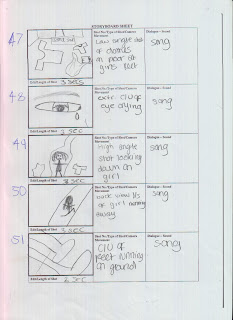 STORYBOARD SHEET
47
Shot No/Type of Shot/Camera Movement
Dialogue - Sound
Low angle shot of
on floor at
girls feet
song
Edit/Length of Shot
3 SECS
48
Shot No/Type of Shot/Camera Movement
Dialogue - Sound
extr. C/U of
eye crying
song
Edit/Length of Shot
2 SEC
49
Shot No/Type of Shot/Camera Movement
Dialogue - Sound
High angle
shot looking
down on
girl
song
Edit/Length of Shot
SEC
50
Shot No/Type of Shot/Camera Movement
Dialogue - Sound
of girl running
away
song
Edit/Length of Shot
SEC
51
Shot No/Type of Shot/Camera Movement
Dialogue - Sound
C/U of
feet running
on ground
song
Edit/Length of Shot
2 SEC